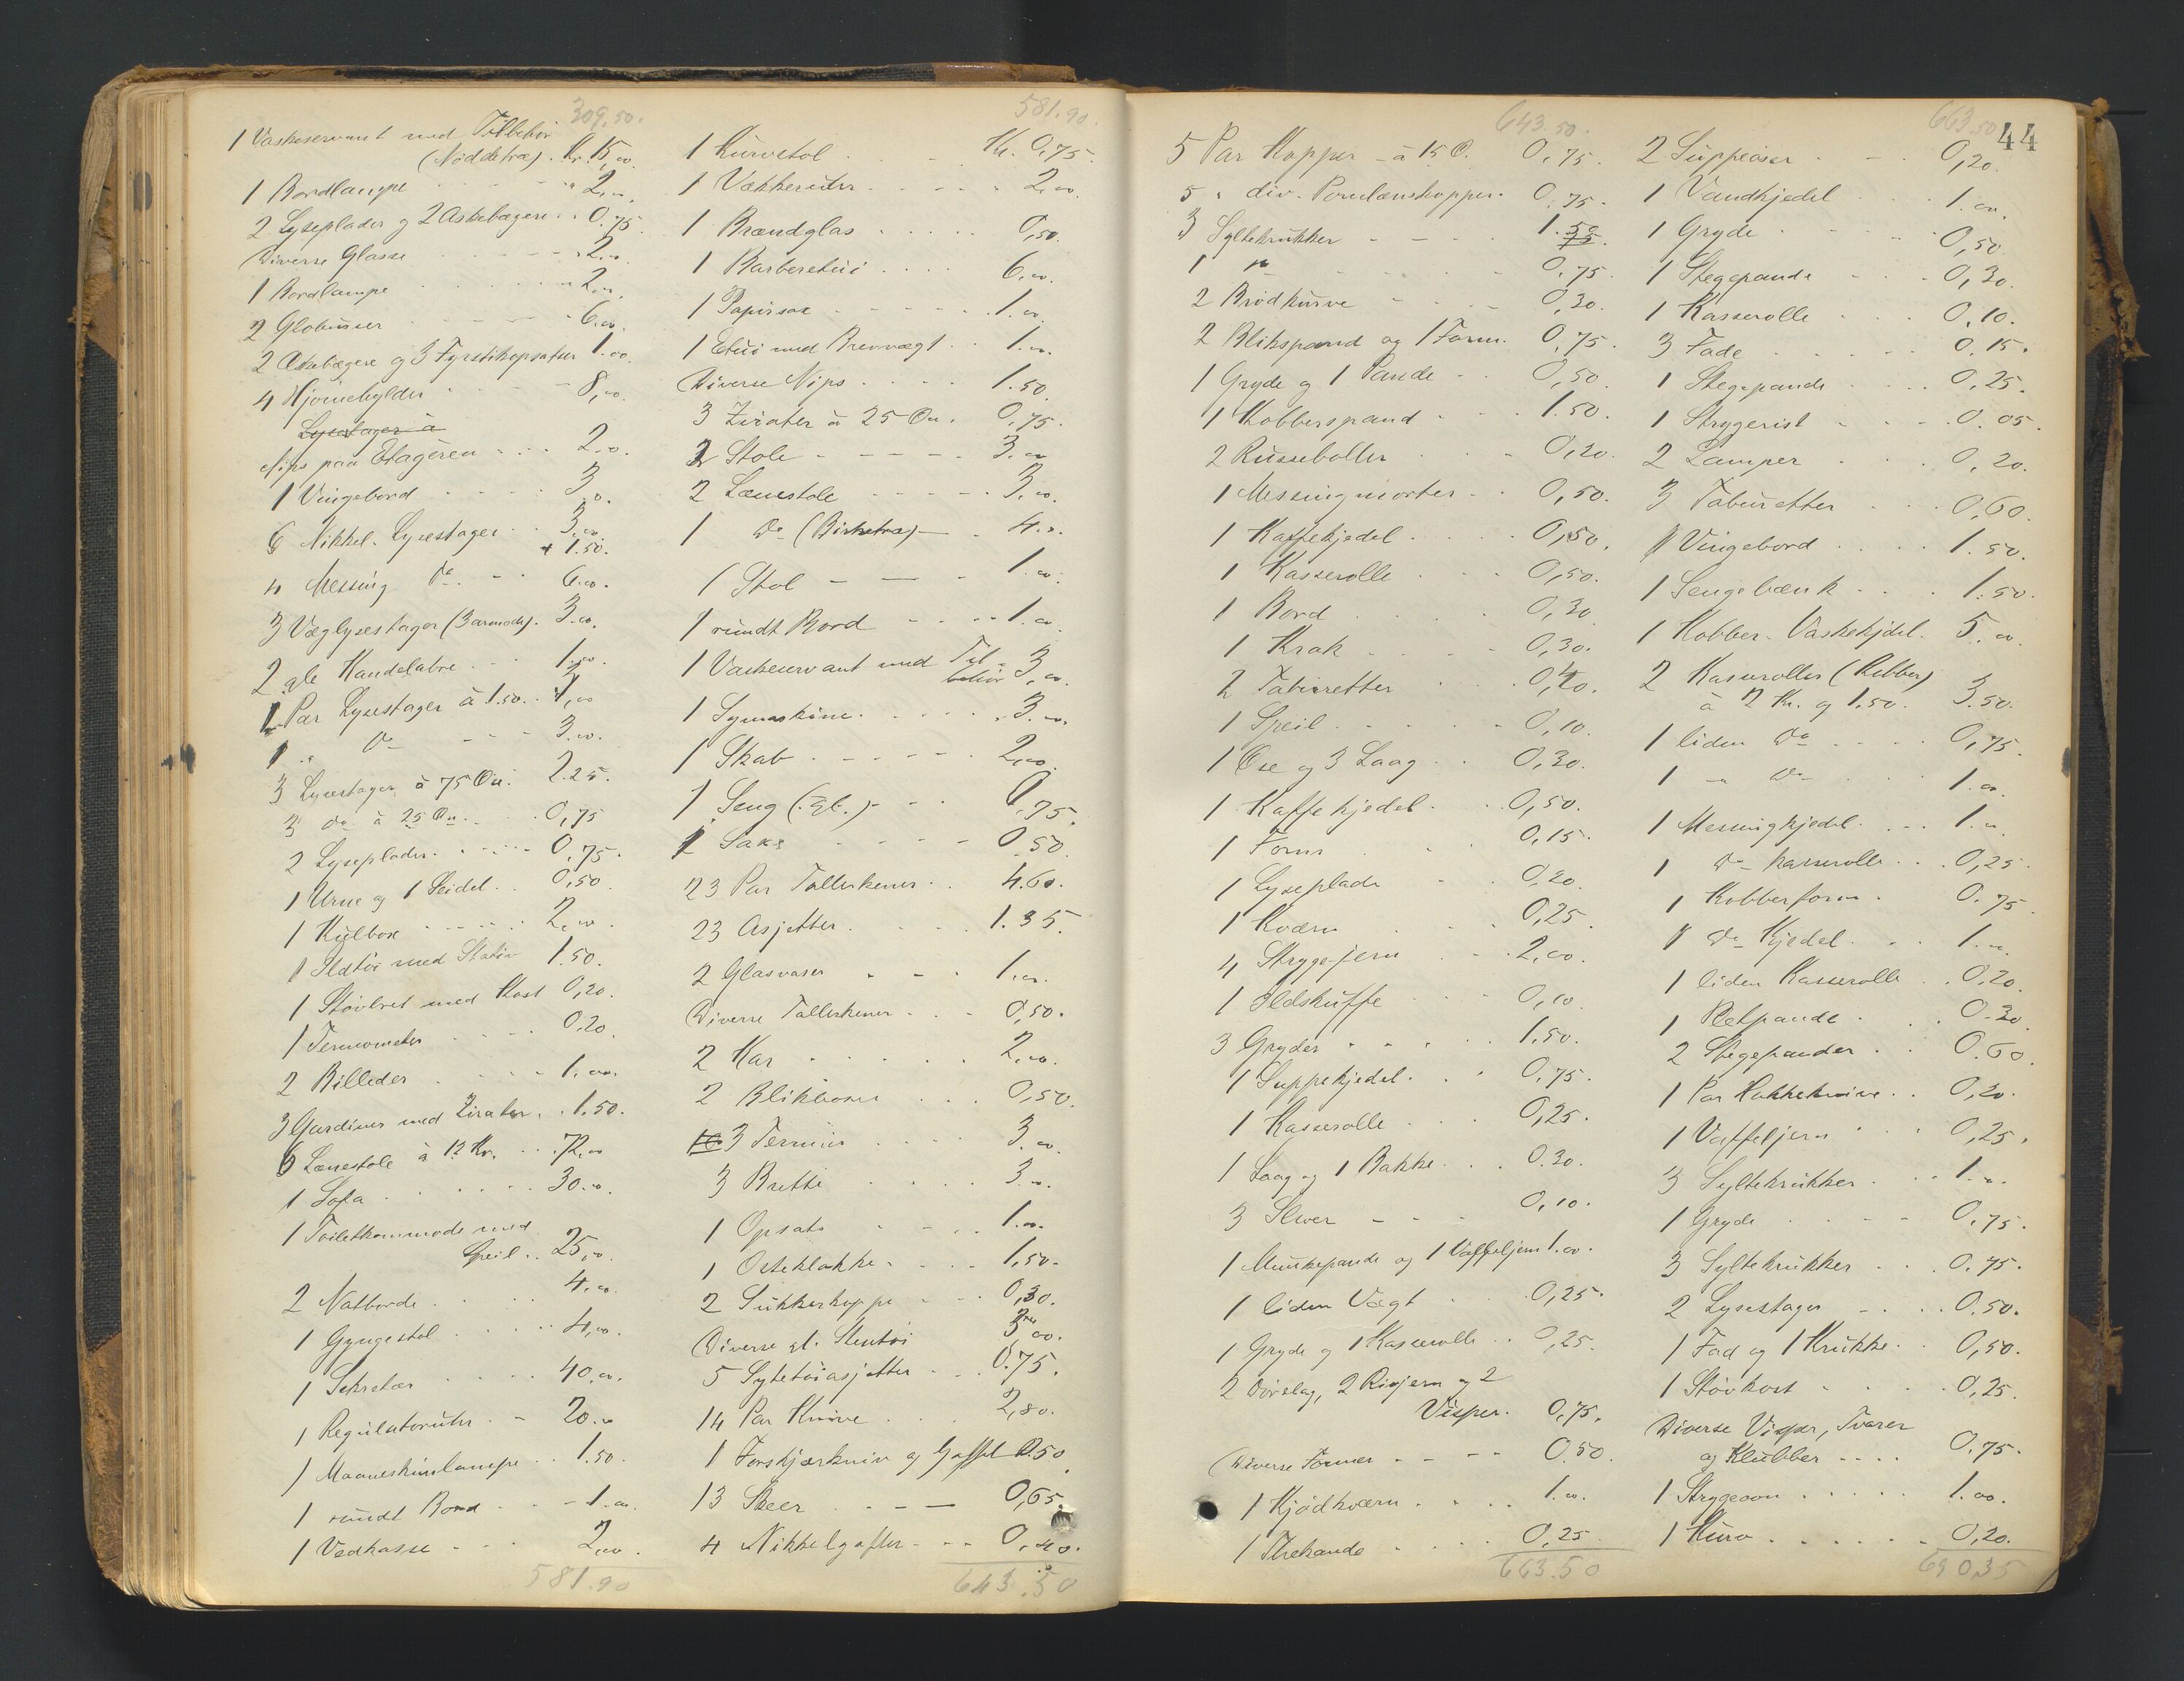 309,50.
1 Vaskeservant med Tilbehør
(Nøddetræ). Kr. 15,00
1 Bordlampe " 2,00
2 Lyseplader og 2 Askebægere 0.75.
Diverse Glasse 2.00
1 Bordlampe 2.00
2 Globusser 6.00.
2 Askebægere og 3 Fyrstikopsatser 1.00.
4 Hjørnehylder 8,00.
Lysestager à
Nips paa Etagèren 2.00.
1 Vingebord 3.00.
6 Nikkel. Lysestager 3.00
+ 1.50.
4 Messing Do. 6.00.
3 Væglysestager (3 armede). 3.00.
2 gle Kandelabre 1.00.
1 Par Lysestager à 1.50. 1,00
1 " Do 3.00.
3 Lysestager à 75 Øre. 2.25.
3 do à 25 Øre 0,75
2 Lyseplader. 0.75.
1 Urne og 1 Seidel. 0,50
1 Kulbox 2,00
1 Ildtøi med Stativ 1.50.
1 Støvbret med Kost 0,20.
1 Termometer 0.20.
2 Billeder 1.00.
3 Gardiner med Zirater 1.50.
6 Lænestole à 12 Kr. 72,00
1 Sofa 30.00.
1 Toiletkommode med
Speil 25,00.
2 Natborde 4.00.
1 Gyngestol 4,00.
1 Sekretær 40.00.
1 Regulatoruhr 20.00
1 Maaneskinslampe 1.50.
1 rundt Bord 1.00.
1 Vedkasse 2,00.
581.90
581.90.
1 Kurvstol Kr. 0,75.
1 Vækkeruhr 2.00.
1 Brændglas 0,50.
1 Barberetui 6.00
1 Papirsax 1.00
1 Etui med Brevvægt 1.00.
Diverse Nips 1.50
3 Zirater à 25 Øre. 0.75.
2 Stole 3.00
2 Lænestole 3.00.
1 Do (Birketræ) 4.00.
1 Stol 1.00.
1 rundt Bord 1.00.
1 Vaskeservant med Til-
behør 3,00.
1 Symaskine. 3.00.
1 Skab 2,00.
1 Seng (gl.) 0.75.
1 Saks 0.50
23 Par Tallerkener 4.60.
23 Asjetter 1.35.
2 Glasvaser 1.00.
Diverse Tallerkener 0,50.
2 Kar 2.00.
2 Blikboxer 0,50.
3 Terriner 3.00.
3 Bretter 3.00.
1 Opsats 1.00.
1 Osteklokke 1,50.
2 Sukkerkopper 0,30.
Diverse gl. Stentøi 3,00.
5 Syltetøiasjetter 0.75.
14 Par Knive 2,80.
1 Forskjærkniv og Gaffel 0.50
13 Skeer 0,65.
4 Nikkelgafler 0,40.
643.50
643.50.
5 Par Kopper à 15 Ø. 0,75.
5 " div. Porcelænskopper. 0,75.
3 Syltekrukker 1.50
75.
1 " 0,75.
2 Brødkurve 0,30.
2 Blikspand og 1 Form. 0,75.
1 Gryde og 1 Pande 0,50.
1 Kobberspand 1.50.
2 Russeboller 0,20.
1 Messingmorter 0,50.
1 Kaffekjedel 0,50.
1 Kasserolle 0,50.
1 Bord 0,30
1 Krak 0,30.
2 Taburetter 0,40.
1 Speil 0,10.
1 Øse og 3 Laag 0,30.
1 Kaffekjedel 0,50.
1 Form 0,15.
1 Lyseplade 0,20.
1 Kværn 0,25.
4 Strygejern 2,00.
1 Ildskuffe 0,10.
3 Gryder 1,50.
1 Suppekjedel 0,75.
1 Kasserolle 0,25.
1 Laag og 1 Bakke 0.30.
3 Sleer 0,10.
1 Munkepande og 1 Vaffeljern 1.00.
1 liden Vægt 0,25.
1 Gryde og 1 Kasserolle 0,25.
2 Dørslag, 2 Rivjern og 2
Visper. 0,75.
Diverse Former 0.50.
1 Kjødkværn 1.00.
1 Thekande 0,25.
663.50
663.50 44
2 Suppeøser 0,20.
1 Vandkjedel 1.00.
1 Gryde 0,50
1 Stegepande 0,30.
1 Kasserolle 0,10.
3 Fade 0.15.
1 Stegepande 0,25.
1 Strygerist 0.05.
2 Lamper 0,20.
3 Taburetter 0,60.
1 Vingebord 1.50.
1 Sengebænk 1.50.
1 Kobber-Vaskekjdel. 5.00
2 Kasseroller (Kobber)
à 2 Kr. og 1.50. 3.50.
1 liden Do 0,75.
1 " Do 1.00.
1 Messingkjedel 1.00.
1 Do kasserolle 0,25.
1 Kobberform 0.75.
1 Do Kjedel 1.00.
1 liden Kasserolle 0,20.
1 Pletpande 0.30.
2 Stegepander 0.60.
1 Par Hakkeknive 0,20.
1 Vaffeljern 0,25.
3 Syltekrukker 1.00.
1 Gryde 0,75.
3 Syltekrukker 0.75.
2 Lysestager 0.50.
1 Fad og 1 Krukke 0,50.
1 Støvkost 0,25.
Diverse Visper, Tvarer
og Klubber 0.75.
1 Strygeovn 1.00.
1 Kurv 0,20.
690,35